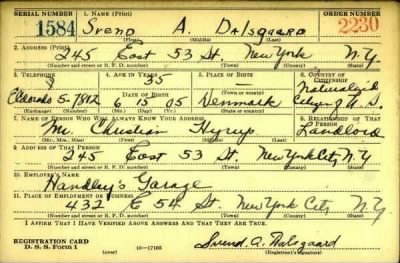 SERIAL NUMBER 1. NAME (Print) ORDER NUMBER
1584 Svend A. Dalsgaard 2230
(First) (Middle) (Last)
2. ADDRESS (Print)
245 East 53 St. New York N.Y.
(Number and street or R. F. D. number) (Town) (County) (State)
3. TELEPHONE 4. AGE IN YEARS 5. PLACE OF BIRTH 6. COUNTRY OF CITIZENSHIP
35 Naturalized
Eldorado 5-7812 DATE OF BIRTH Denmark Citizen of U.S.
6 15 05
(Exchange) (Number) (Mo.) (Day) (Yr.) (State or country)
7. NAME OF PERSON WHO WILL ALWAYS KNOW YOUR ADDRESS 8. RELATIONSHIP OF THAT PERSON
Mr. Christian Hyrup Landlord
(Mr., Mrs., Miss) (First) (Middle) (Last)
9. ADDRESS OF THAT PERSON
245 East 53 St. New York City N.Y.
(Number and street or R. F. D. number) (Town) (County) (State)
10. EMPLOYER'S NAME
Handley's Garage
11. PLACE OF EMPLOYMENT OR BUSINESS
432 E 54 St. New York City N.Y.
(Number and street or R. F. D. number) (Town) (County) (State)
I AFFIRM THAT I HAVE VERIFIED ABOVE ANSWERS AND THAT THEY ARE TRUE.
REGISTRATION CARD
D. S. S. Form 1 16—17105 Svend A. Dalsgaard
(Registrant's signature)